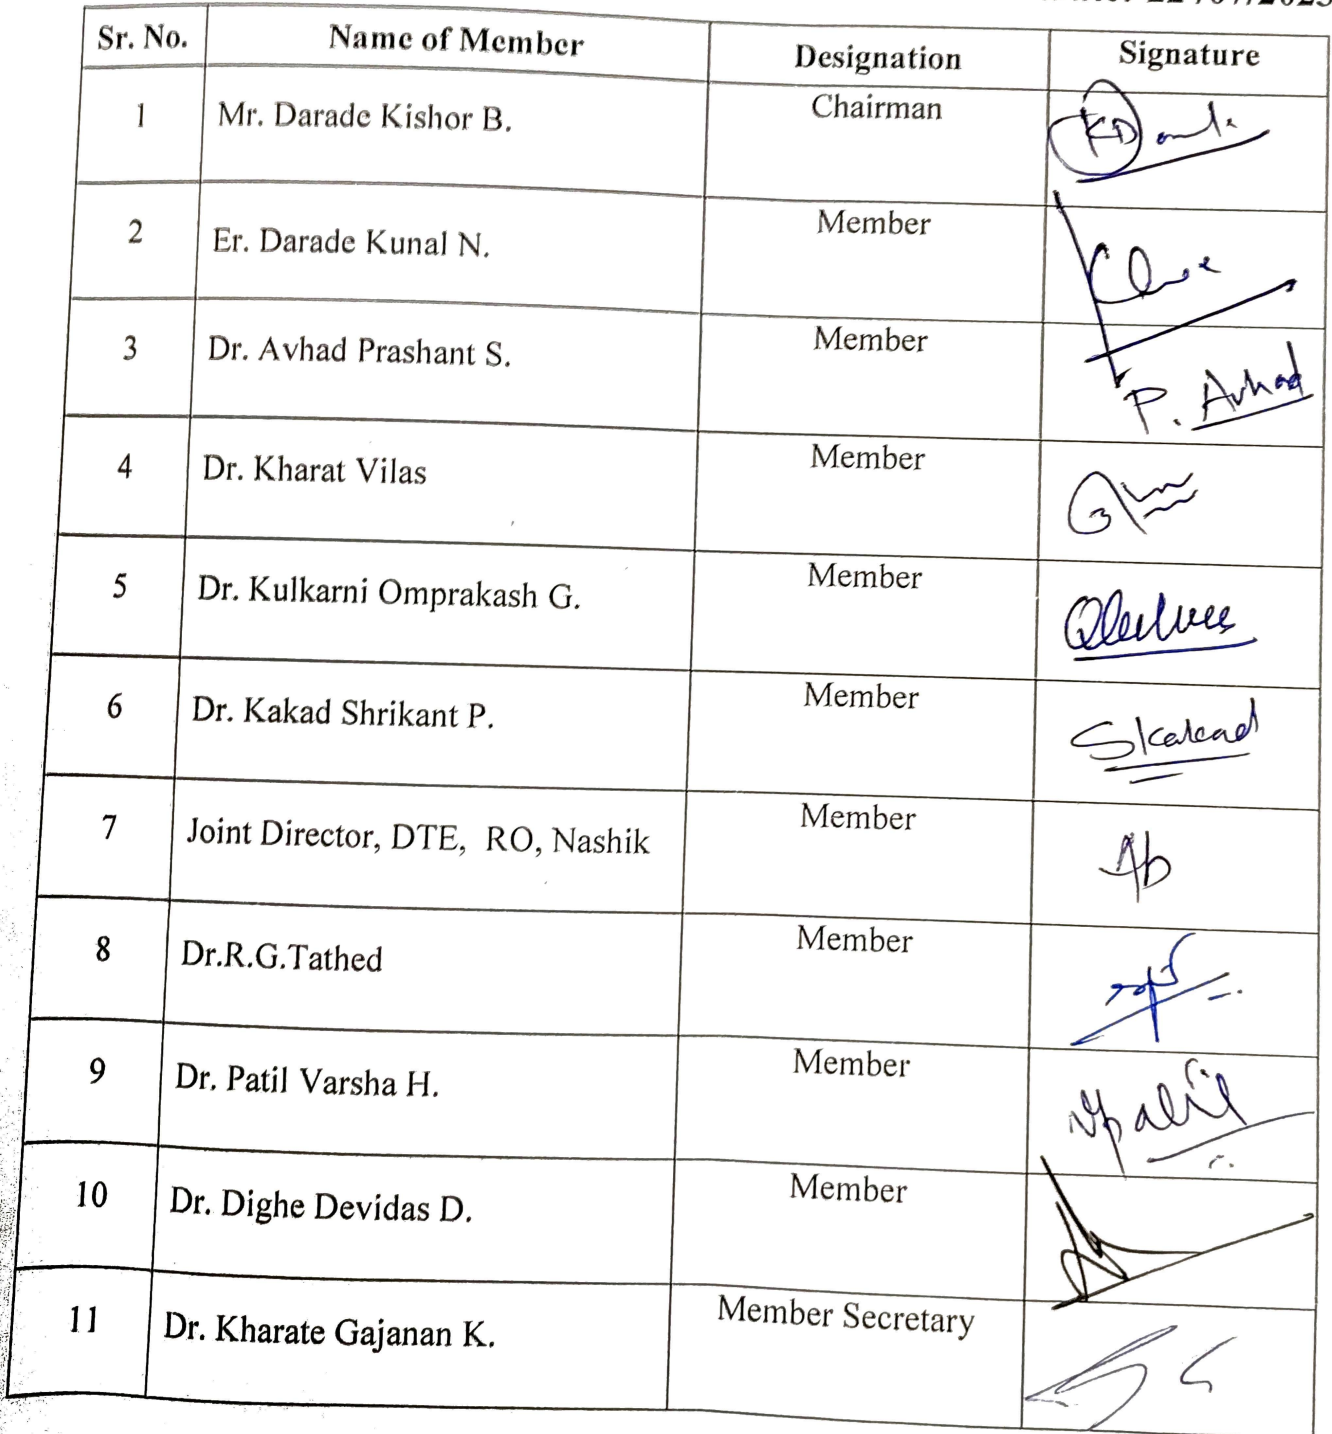 Sr. No. Name of Member Designation Signature
1 Mr. Darade Kishor B. Chairman
2 Er. Darade Kunal N. Member
3 Dr. Avhad Prashant S. Member P. Avhad
4 Dr. Kharat Vilas Member
5 Dr. Kulkarni Omprakash G. Member
6 Dr. Kakad Shrikant P. Member Skakad
7 Joint Director, DTE, RO, Nashik Member
8 Dr.R.G.Tathed Member
9 Dr. Patil Varsha H. Member
10 Dr. Dighe Devidas D. Member
11 Dr. Kharate Gajanan K. Member Secretary